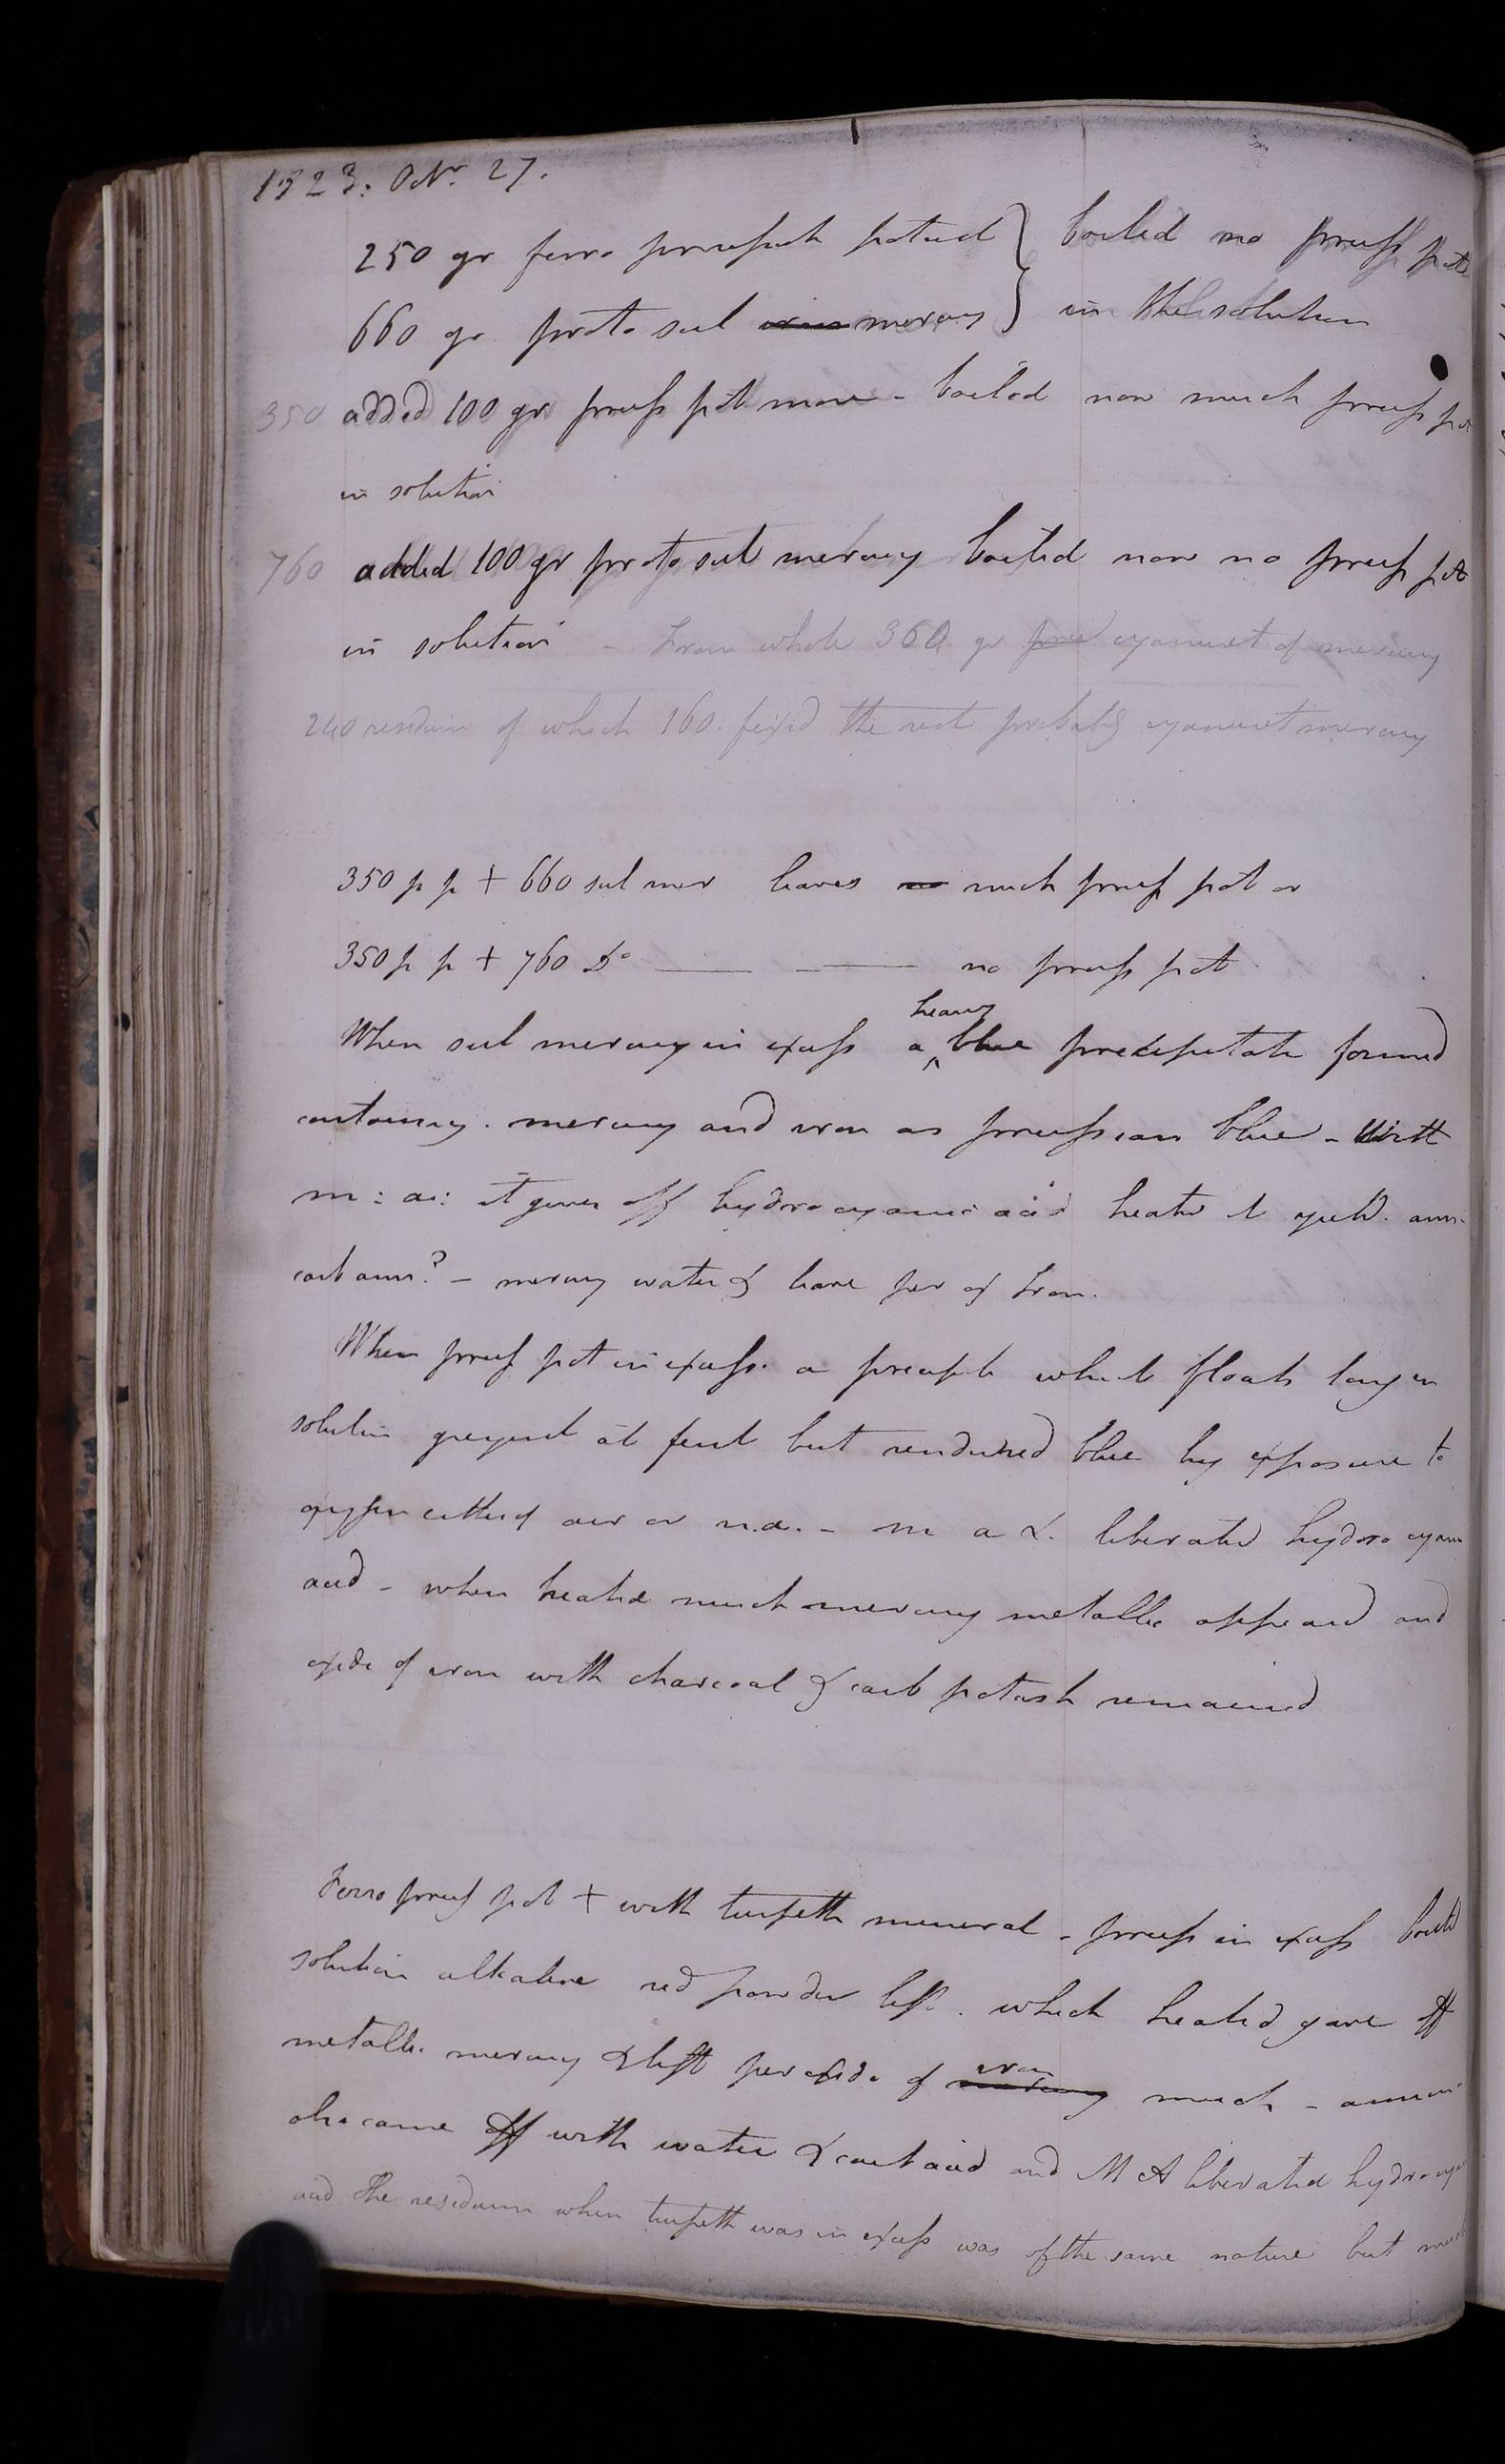 1823: Octr. 27.
250 gr ferro prussiate potash } boiled no pruss pot
660 gr. proto sul mercury } in the solution
350 added 100 gr pruss pot more - boiled now much pruss pot
in solution
760 added 100 gr proto sul mercury boiled now no pruss pot
in solution - From whole 360 gr cyanuret of mercury
240 residuum of which 160. fixed the rest probably cyanuret mercury
350 p p + 660 sul mer leaves no much pruss pot or
350 p p + 760 Do —— —— no pruss pot
heavy
When sul mercury in excess a ^ blue precipitate formed
containing. mercury and iron as prussian blue - With
m: a: it gives off hydrocyanic acid heated it yields. amm.
carb amm? - mercury water & leave per ox Iron.
When pruss pot in excess. a precipite which floats long in
solution greyish at first but rendered blue by exposure to
oxygen either of air or n.a. - m a &. liberated hydro cyani
acid - when heated much mercury metallic appeard and
oxide of iron with charcoal & carb potash remained
Ferro pruss pot + with turpeth mineral - pruss in excess boiled
solution alkaline red powder left. which heated gave off
iron
metallic mercury & left peroxide of mercury much - ammon
also came off with water & carb acid and M A liberated hydrocya
acid The residuum when turpeth was in excess was of the same nature but